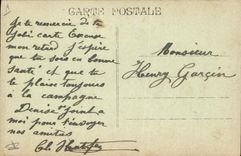 CARTE POSTALE
Je te remercie de ta
jolie carte Excuse
mon retard j'espère
que tu sois en bonne
santé et que tu
te plaise toujours
à la campagne
Denise se joint à
moi pour t'envoyer
nos amitiés
Ch.
Monsieur
Henry Garçin